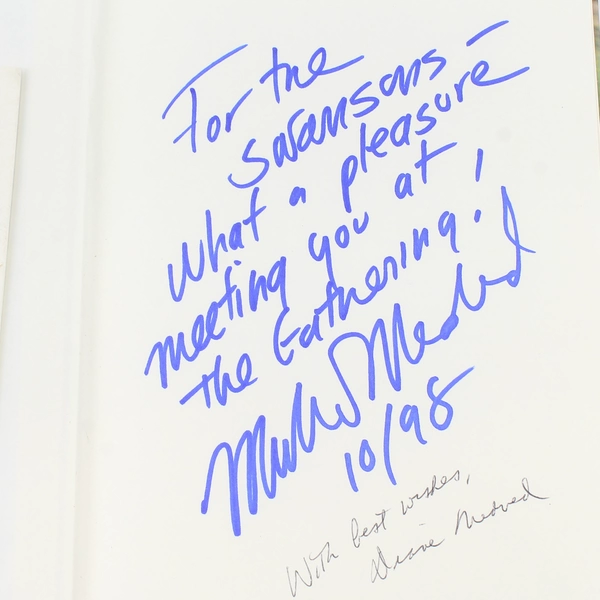 For the
Swansons –
What a pleasure
meeting you at
The Gathering!
Michael Medved
10/98
With best wishes,
Diane Medved